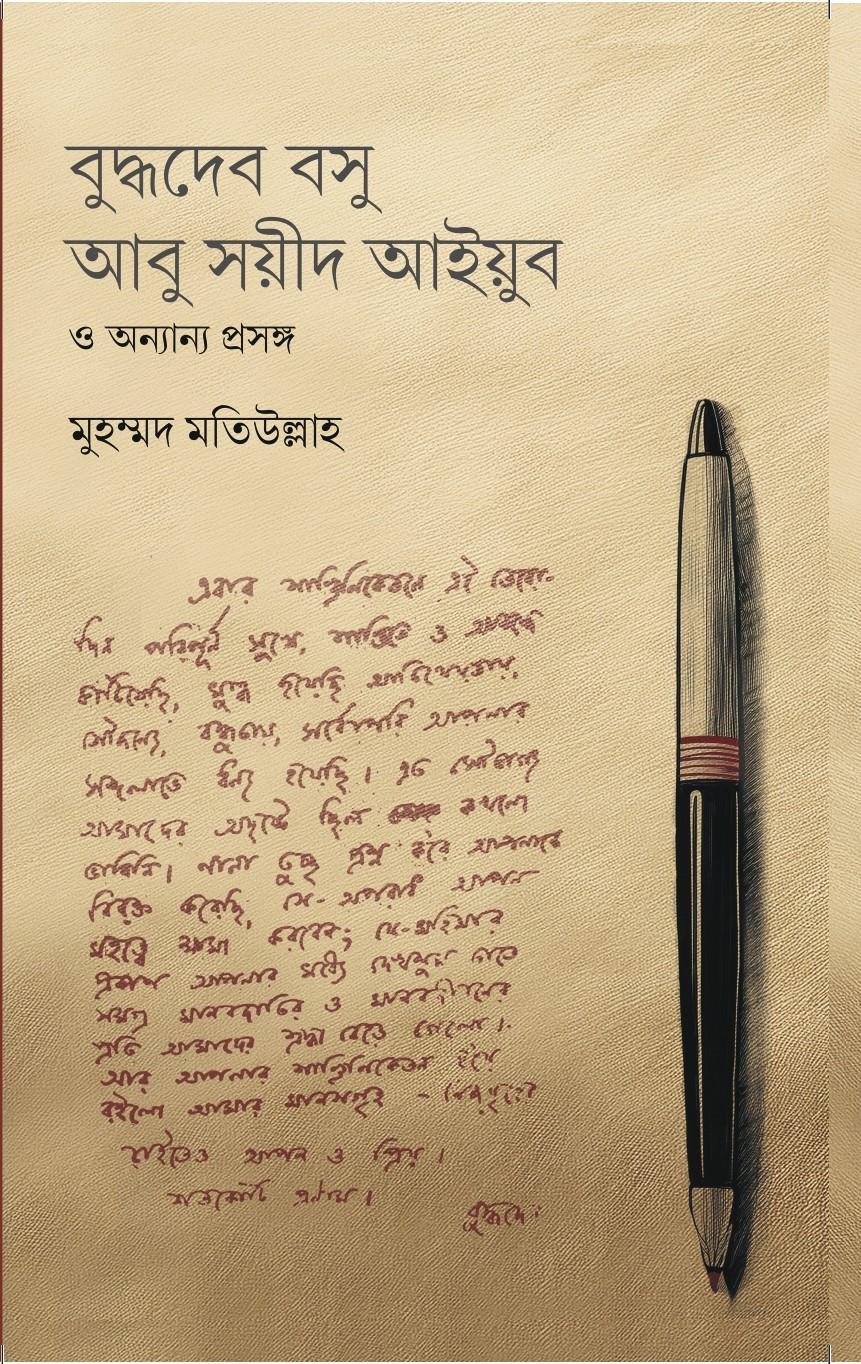 বুদ্ধদেব বসু
আবু সয়ীদ আইয়ুব
ও অন্যান্য প্রসঙ্গ
মুহম্মদ মতিউল্লাহ
এবার শান্তিনিকেতনে এই তেরো-
দিন পরিপূর্ণ সুখে, শান্তিতে ও
কাটিয়েছি, মুগ্ধ হয়েছি আতিথেয়তায়,
সৌজন্যে, বন্ধুতায়, সর্বোপরি আপনার
সঙ্গলাভে ধন্য হয়েছি। এত সৌভাগ্য
আমাদের অদৃষ্টে ছিল কখনো
ভাবিনি। নানা তুচ্ছ প্রশ্ন করে আপনাকে
বিরক্ত করেছি, সে-অপরাধ আপনি
মহত্ত্বে ক্ষমা করবেন; যে-মহিমার
প্রকাশ আপনার মধ্যে দেখলুম তাতে
সমগ্র মানবজাতির ও মানবজীবনের
প্রতি আমাদের শ্রদ্ধা বেড়ে গেলো।
আর আপনার শান্তিনিকেতন হয়ে
রইলো আমার মানসগৃহ -
আপন ও প্রিয়।
শতকোটি প্রণাম।
বুদ্ধদেব